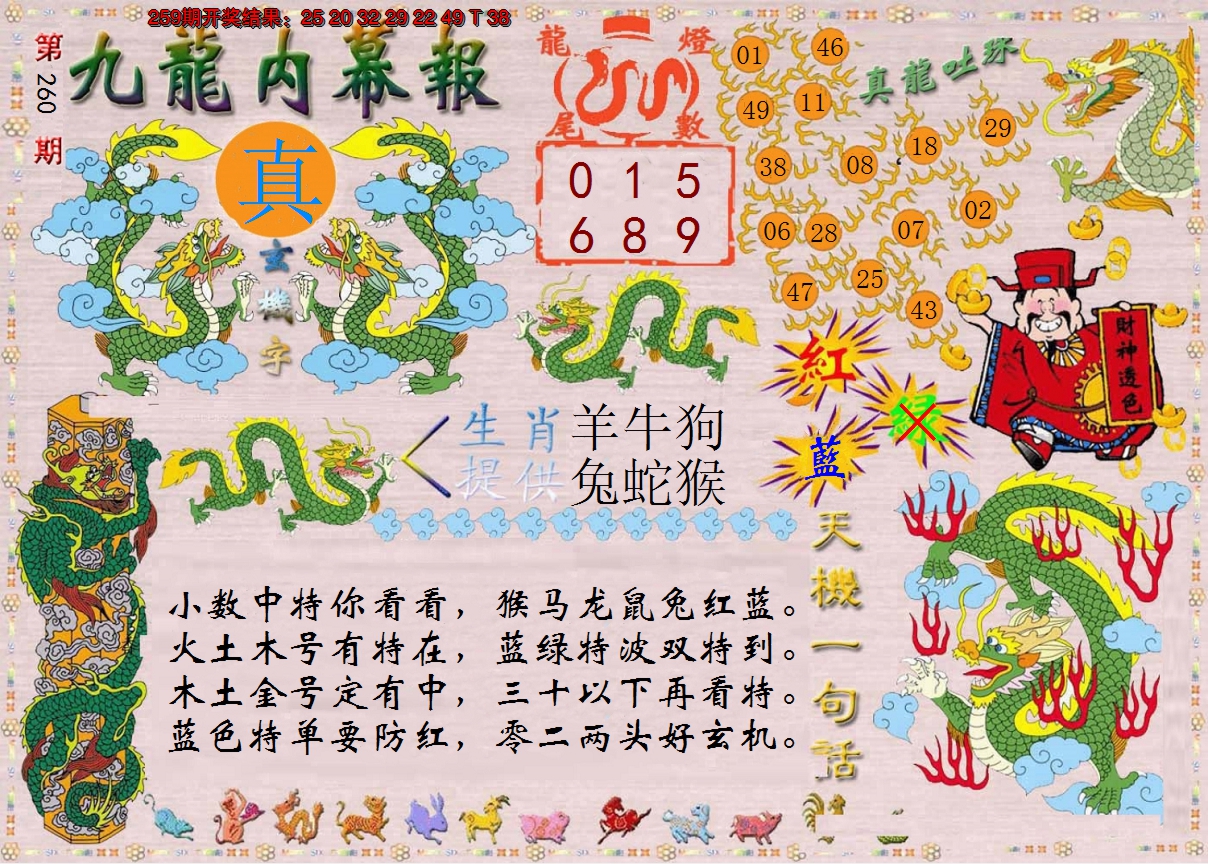 259期开奖结果：25 20 32 29 22 49 T 38
第260期
九龍内幕報
真
玄機字
龍燈尾數
0 1 5
6 8 9
真龍吐珠
01 46
49 11
38 08 18 29
06 28 07 02
47 25 43
紅
绿
藍
財神透色
生肖提供
羊牛狗
兔蛇猴
天機一句话
小数中特你看看，猴马龙鼠兔红蓝。
火土木号有特在，蓝绿特波双特到。
木土金号定有中，三十以下再看特。
蓝色特单要防红，零二两头好玄机。